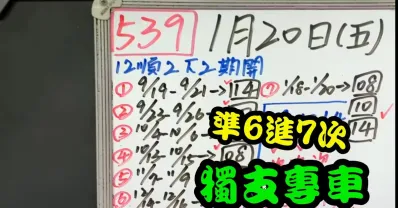 539 1月20日(五)
12順2下2期開
① 9/19-9/21→14 ⑦ 1/18-1/20→08
② 9/23-9/26 10
③ 10/4-10/6 14
④ 10/13-10/15→08
⑤ 11/7-11/9
⑥ 12/14
準6進7次
獨支專車